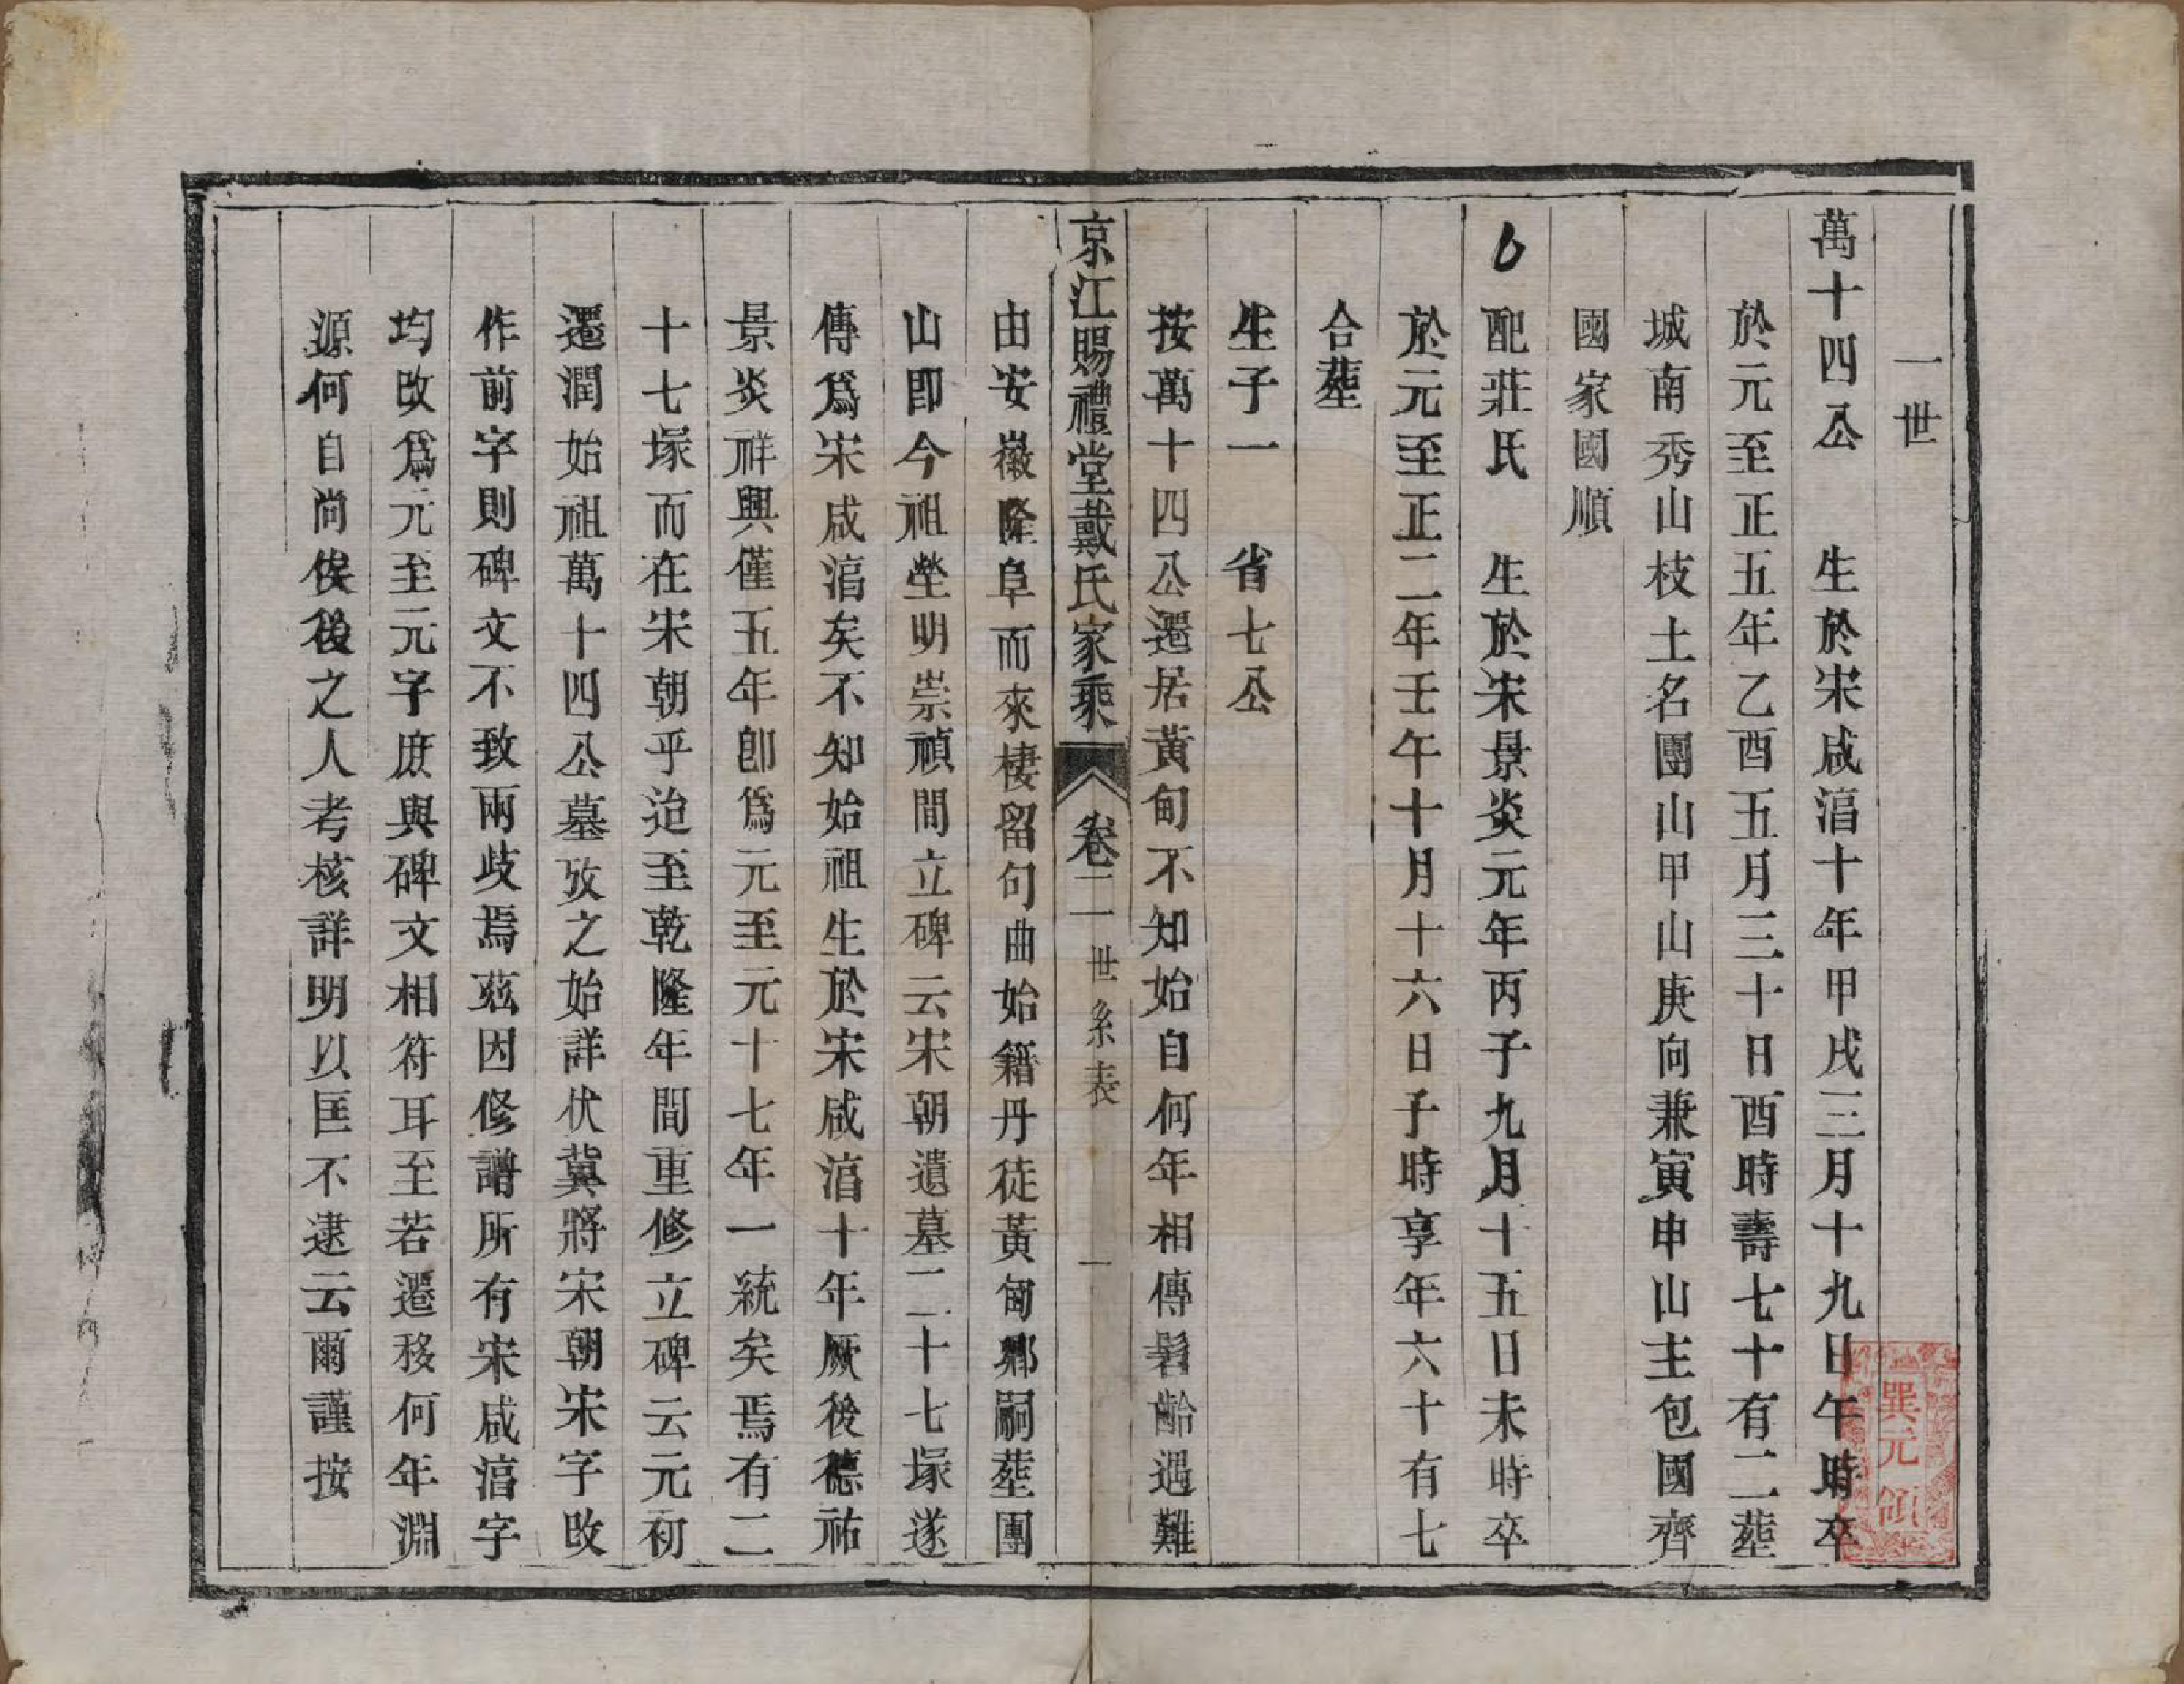 一世
萬十四公　生於宋咸淳十年甲戌三月十九日午時卒
於元至正五年乙酉五月三十日酉時壽七十有二葬
城南秀山枝土名團山甲山庚向兼寅申山主包國齊
國家國順
配莊氏　生於宋景炎元年丙子九月十五日未時卒
於元至正二年壬午十月十六日子時享年六十有七
合葬
生子一　省七公
按萬十四公遷居黃甸不知始自何年相傳髫齡遇難
京江賜禮堂戴氏家乘　卷二　世系表　一
由安徽隆阜而來棲留句曲始籍丹徒黃甸鄉嗣葬團
山即今祖塋明崇禎間立碑云宋朝遺墓二十七塚遂
傳爲宋咸淳矣不知始祖生於宋咸淳十年厥後德祐
景炎祥興僅五年卽爲元至元十七年一統矣焉有二
十七塚而在宋朝乎迨至乾隆年間重修立碑云元初
遷潤始祖萬十四公墓攷之始詳伏冀將宋朝宋字改
作前字則碑文不致兩歧焉茲因修譜所有宋咸淳字
均改爲元至元字庶與碑文相符耳至若遷移何年淵
源何自尚俟後之人考核詳明以匡不逮云爾謹按
巽元領